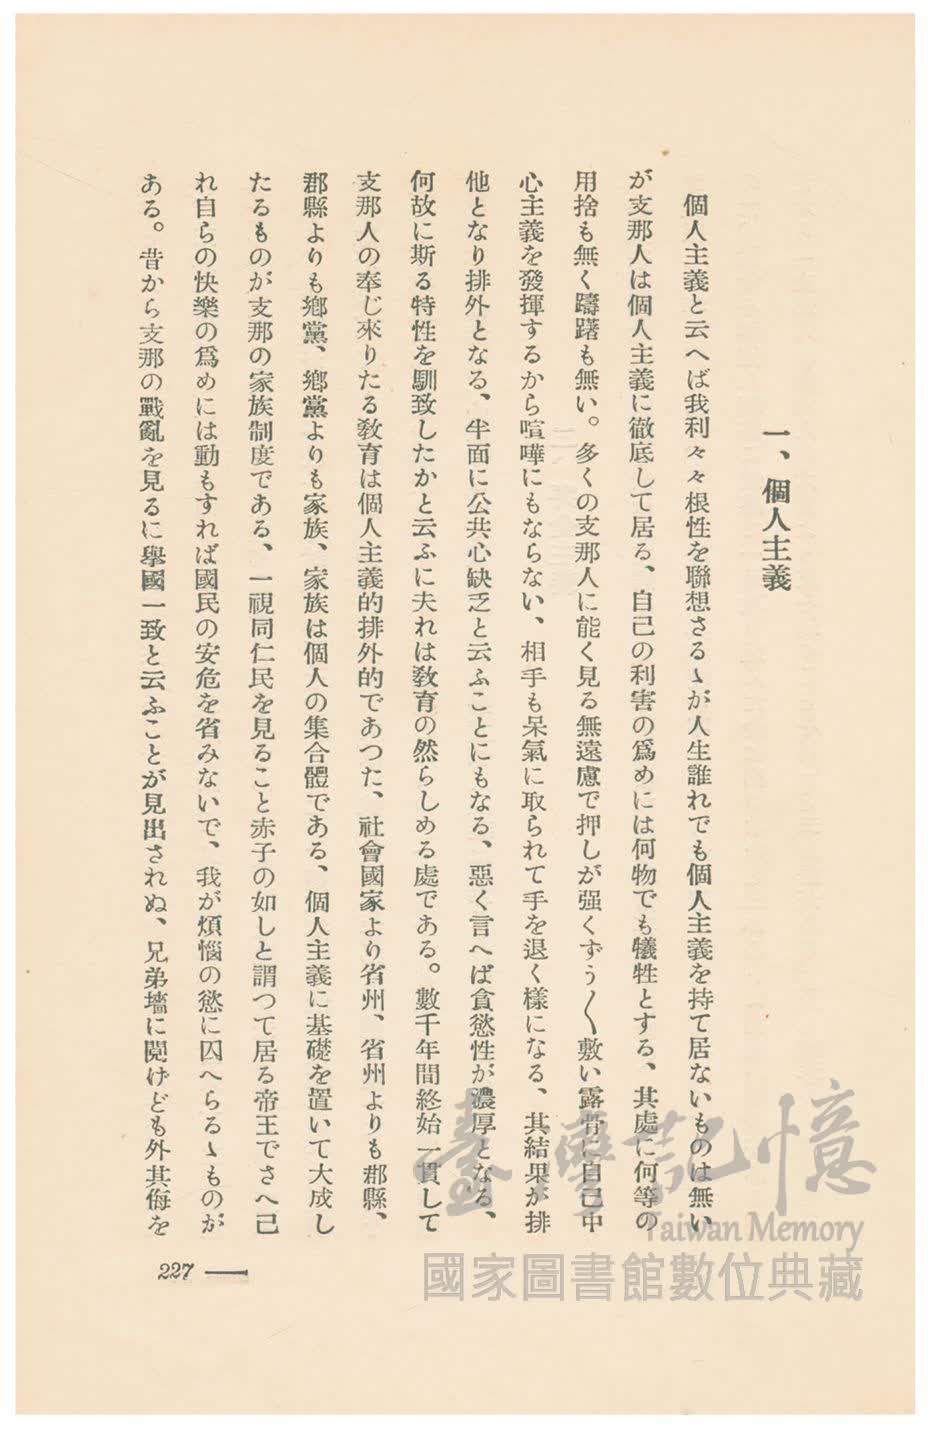 一、個人主義
個人主義と云へば我利々々根性を聯想さるゝが人生誰れでも個人主義を持て居ないものは無い
が支那人は個人主義に徹底して居る、自己の利害の爲めには何物でも犧牲とする、其處に何等の
用捨も無く躊躇も無い。多くの支那人に能く見る無遠慮で押しが强くずう〱敷い露骨に自己中
心主義を發揮するから喧嘩にもならない、相手も呆氣に取られて手を退く樣になる、其結果が排
他となり排外となる、半面に公共心缺乏と云ふことにもなる、惡く言へば貪慾性が濃厚となる、
何故に斯る特性を馴致したかと云ふに夫れは敎育の然らしめる處である。數千年間終始一貫して
支那人の奉じ來りたる敎育は個人主義的排外的であつた、社會國家より省州、省州よりも郡縣、
郡縣よりも鄕黨、鄕黨よりも家族、家族は個人の集合體である、個人主義に基礎を置いて大成し
たるものが支那の家族制度である、一視同仁民を見ること赤子の如しと謂つて居る帝王でさへ己
れ自らの快樂の爲めには動もすれば國民の安危を省みないで、我が煩惱の慾に囚へらるゝものが
ある。昔から支那の戰亂を見るに擧國一致と云ふことが見出されぬ、兄弟墻に鬩げども外其侮を
227
臺灣記憶
Taiwan Memory
國家圖書館數位典藏